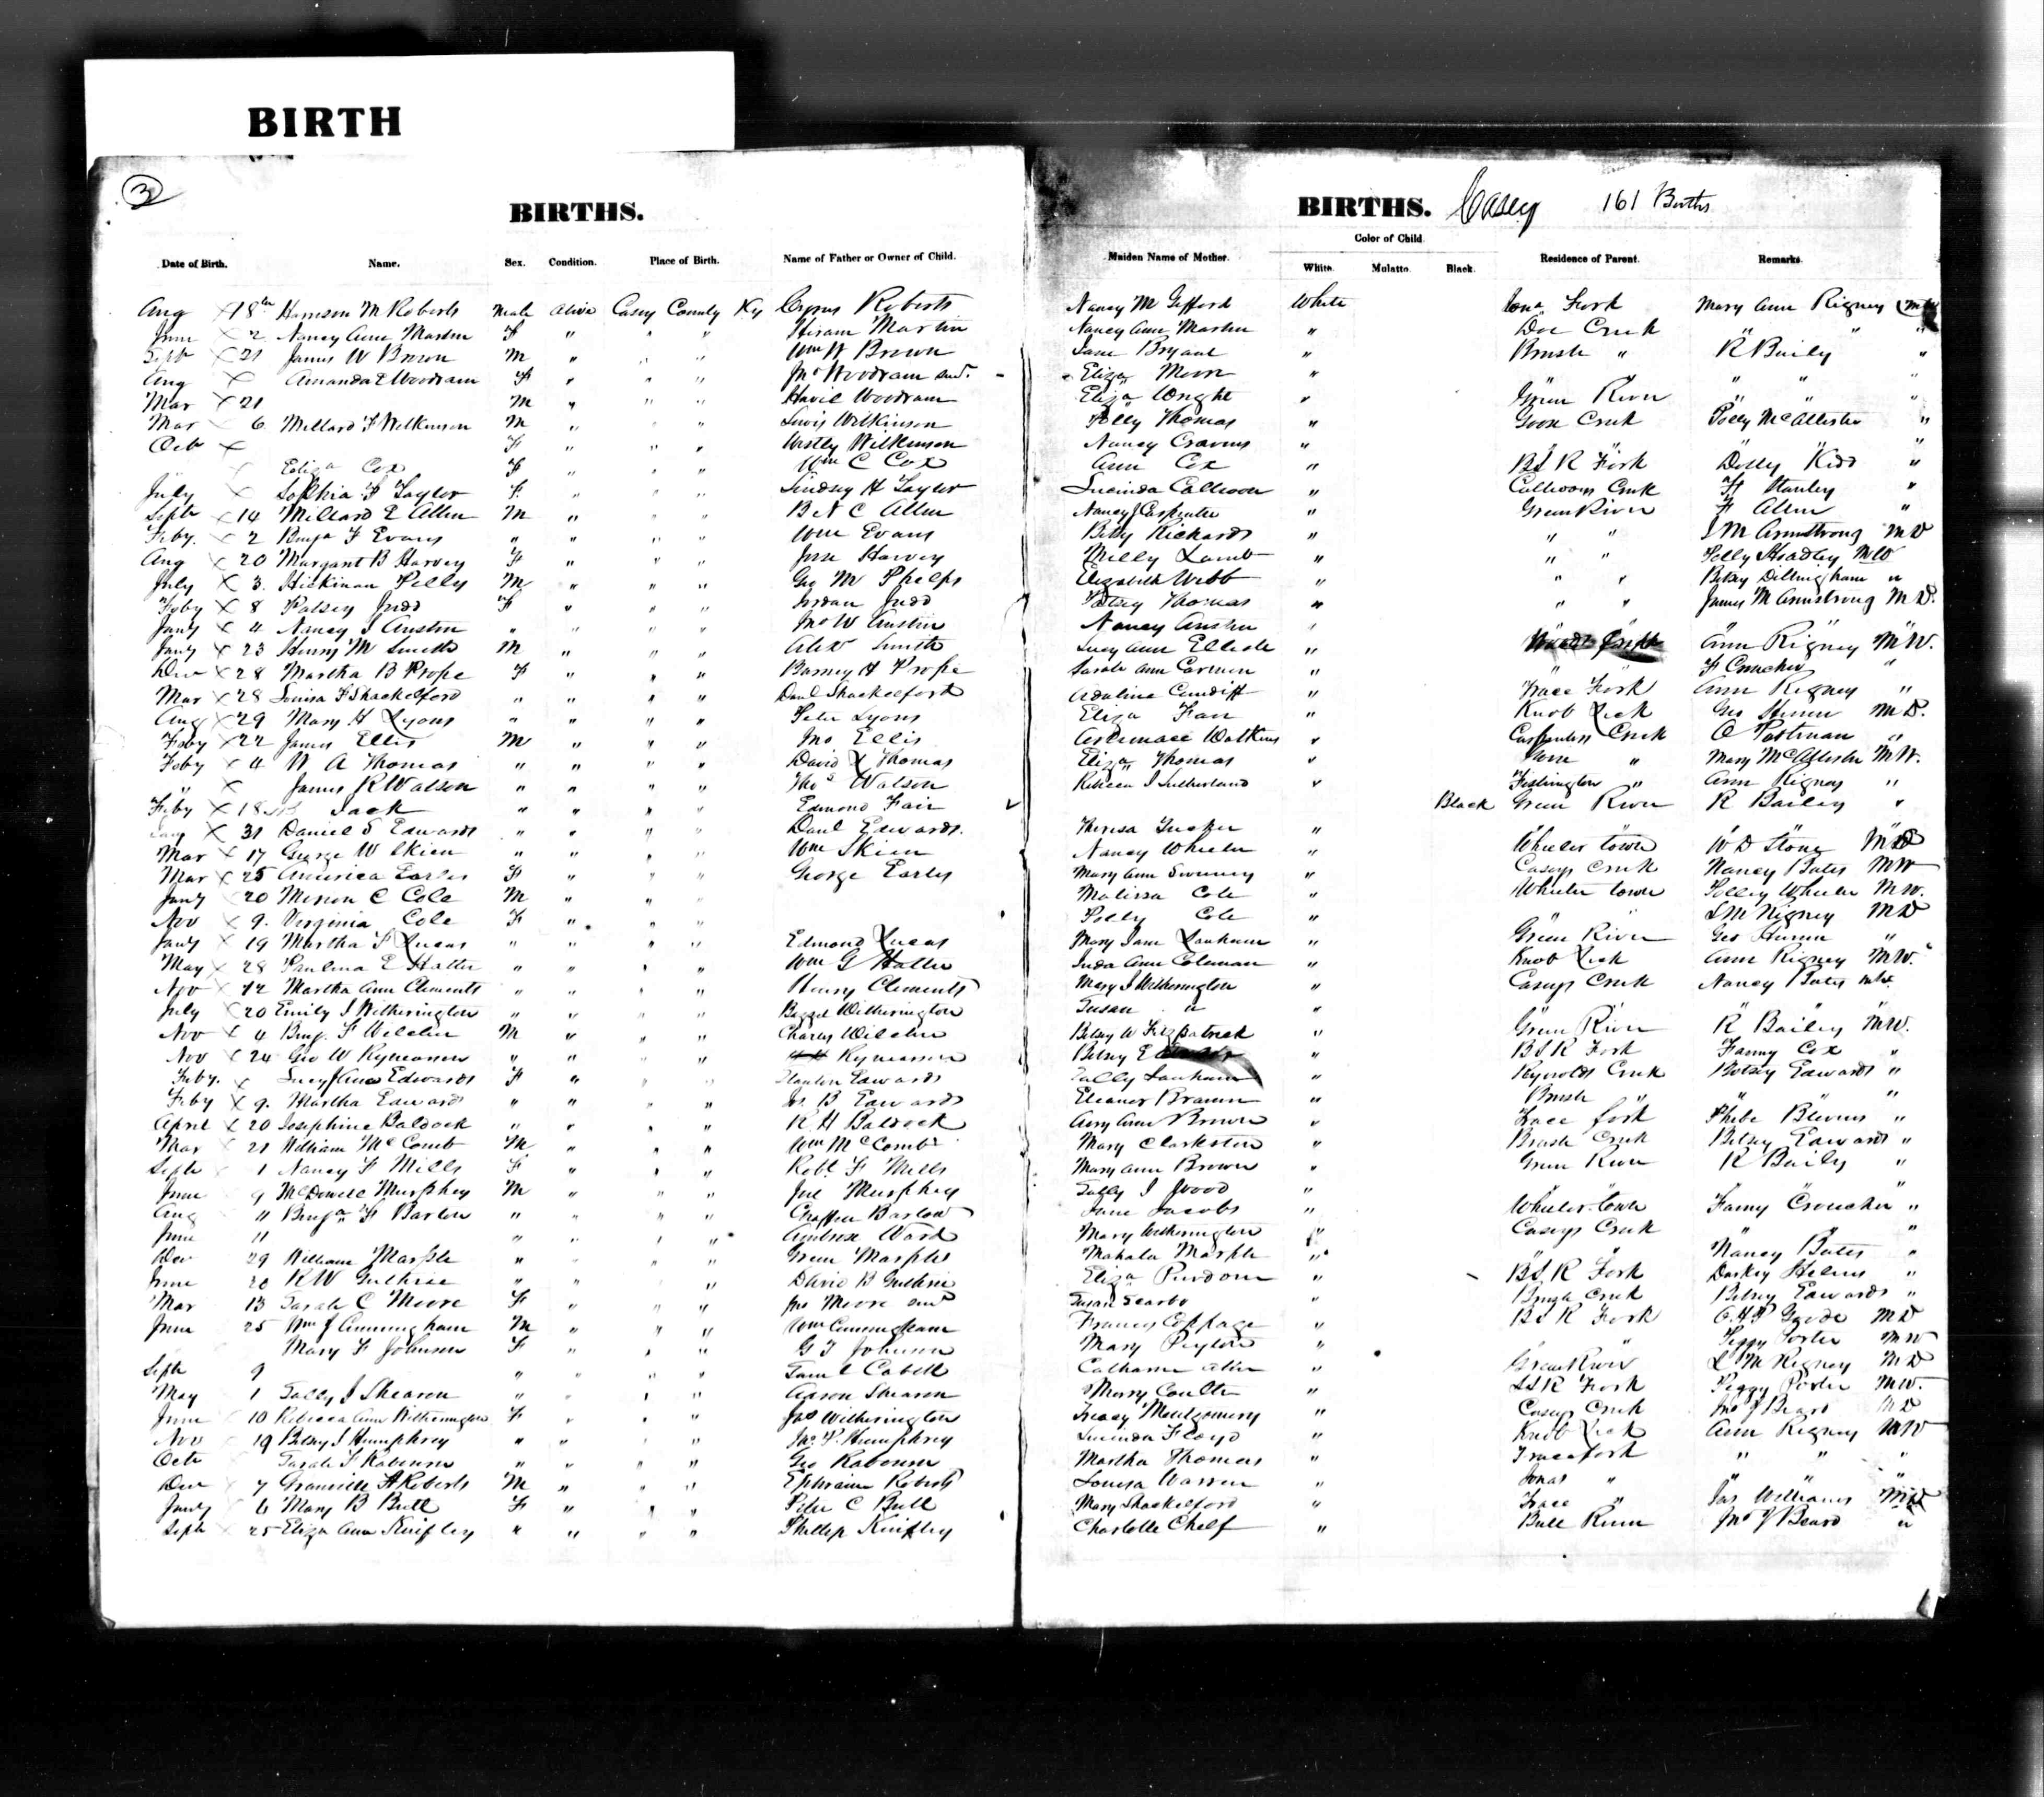 BIRTH
3
BIRTHS.
Date of Birth. Name. Sex. Condition. Place of Birth. Name of Father or Owner of Child.
Aug X 18th Harrison M Roberts Male Alive Casey County Ky Cyrus Roberts
June X 2 Nancy Ann Martin F " " " Hiram Martin
Sept X 21 James W Brown M " " " Wm W Brown
Aug X Amanda E Woodram F " " " Jno Woodram
Mar X 21 M " " " Woodram
Mar X 6 Millard F Wilkinson M " " " Lewis Wilkinson
Oct X F " " " Westly Wilkinson
X Eliza Cox F " " " Wm C Cox
July X Sophia F Taylor F " " " Lindsey H Taylor
Sept X 14 Millard E Allen M " " " B N C Allen
Feby. X 2 Benja F Evans " " " " Wm Evans
Aug X 20 Margant B Harvey F " " " Jesse Harvey
July X 3. Hickman Pelly M " " " Geo M Phelps
Feby X 8 Patsey Judd F " " " Jordan Judd
Jany X 4 Nancy J Austin " " " " Jno W Austin
Jany X 23 Henry M Smith M " " " Alex Smith
Dec X 28 Martha B Prope F " " " Barney H Prope
Mar X 28 Louisa F Shackelford " " " " Danl Shackelford
Aug X 29 Mary H Lyons " " " " Peter Lyons
Feby X 22 James Ellis M " " " Jno Ellis
Feby X 4 W A Thomas " " " " David X Thomas
" X James R Watson " " " " Thos Watson
Feby X 18 Jack " " " " Edmond Fair
X 31 Daniel S Edwards " " " " Danl Edwards.
Mar X 17 George W Skien " " " " Wm Skien
Mar X 25 America Earles F " " " George Earles
Jany X 20 C Cole M " " "
Nov X 9. Virginia Cole F " " "
Jany X 19 Martha F Lucas " " " " Edmond Lucas
May X 28 Paulina E Hatter " " " " Wm G Hatter
Nov X 12 Martha Ann Clements " " " " Henry Clements
July X 20 Emily J Witherington " " " " Witherington
Nov X 4 Benj. F Wilcher M " " " Charles Wilcher
Nov X 24 Geo W Rymeson " " " " Rymeson
Feby. X Lucy Ann Edwards F " " " Edwards
Feby X 9. Martha Edwards " " " " Js. B Edwards
April X 20 Josephine Baldock " " " " R H Baldock
Mar X 21 William McComb M " " " Wm McComb
Sept 1 Nancy F Mills F " " " Robt F Mills
June 9 McDowell Murphey M " " " Joe Murphey
Aug 11 Benja F Barlow " " " " Barlow
June 11 " " " " Ambrose Ward
Dec 29 William Marple " " " " Green Marple
June 20 R W Guthrie " " " " David B Guthrie
Mar 13 Sarah C Moore F " " " Jno Moore
June 25 Wm J Cunningham M " " " Wm Cunningham
Mary F Johnson F " " " G T Johnson
Sept 9 " " " " Saml Cabell
May 1 Sally J Shearon " " " " Aaron Shearon
June 10 Rebecca Ann Witherington F " " " Jas Witherington
Nov 19 Betsy J Humphrey " " " " Jas. P. Humphrey
Octr Sarah J Robinson " " " " Geo Robinson
Dec 7 Granville H Roberts M " " " Ephraim Roberts
Jany 6 Mary B Bull F " " " Peter C Bull
Sept X 25 Eliza Ann Knifley " " " " Phillip Knifley
BIRTHS. Casey 161 Births
Color of Child.
Maiden Name of Mother. White. Mulatto. Black. Residence of Parent. Remarks.
Nancy M Gifford White Fork Mary Ann Rigney
Nancy Ann Martin " Doe Creek " " "
Jane Bryant " Brush " R Baily "
Eliza Moore " " " "
Eliza Wright " Green River " " "
Polly Thomas " Goose Creek Polly McAllister "
Nancy Cravens " "
Ann Cox " B S R Fork Dolly Kidd "
Lucinda Calhoon " Calhoons Creek F Stanley "
Nancy J Carpenter " Green River F Allen "
Betsy Richards " " " J M Armstrong MD
Milly Lamb " " " Polly Hoadley MW
Elizabeth Webb " " " Betsy Dillingham "
Patsey Thomas " " " James M Armstrong MD.
Nancy Austin "
Lucy Ann Elliott " Ann Rigney MW.
Sarah Ann Carmen " F Croucher "
Adaline Cundiff " Trace Fork Ann Rigney "
Eliza Farr " Knob Lick Geo MD.
Watkins " Carpenters Creek O Portman "
Eliza Thomas " " Mary McAllister MW.
Rebecca J Sutherland " Fishington " Ann Rigney "
Black Green River R Bailey "
Theresa Tucker " Wheelertown W D Stone MD
Nancy Wheeler " Caseys Creek Nancy Bates MW
Mary Ann Sweeney " Wheelertown Polly Wheeler MW.
Malissa Cole " L M Rigney MD
Polly Cole " Green River Geo "
Mary Jane Lanham " Knob Lick Ann Rigney MW.
Juda Ann Coleman " Caseys Creek Nancy Bates MW
Mary J Witherington "
Susan " " Green River R Bailey MW.
Betsy W Fitzpatrick " B S R Fork Fanny Cox "
Betsy E " Rynolds Creek Betsey Edwards "
Sally Lanham " Brush " " "
Eleanor Brawn " Trace Fork Phebe Blevins "
Amy Ann Brown " Brush Creek Betsy Edwards "
Mary Clarkston " Green River R Baily "
Mary Ann Brown "
Sally J Wood " Wheelertown Fanny Croucher "
Jane Jacobs " Caseys Creek " "
Mary Witherington " Nancy Bates "
Mahala Marple " B S R Fork Darkey Helms "
Eliza Purdom " Brush Creek Betsy Edwards "
Susan Scarbo " B S R Fork O. H. P. Goode MD
Francis Coppage " " Peggy Porter MW
Mary Peyton " Green River L M Rigney MD
Catharine Allen " S S R Fork Peggy Porter MW.
Mary Coulter " Caseys Creek Jno J Beard MD
Montgomery " Knob Lick Ann Rigney MW
Lucinda Floyd " Trace Fork " " "
Martha Thomas " Jonas " " "
Louisa Warren " Trace " Jas Williams
Mary Shackelford " Bull Runn Jno J Beard "
Charlotte Chelf "